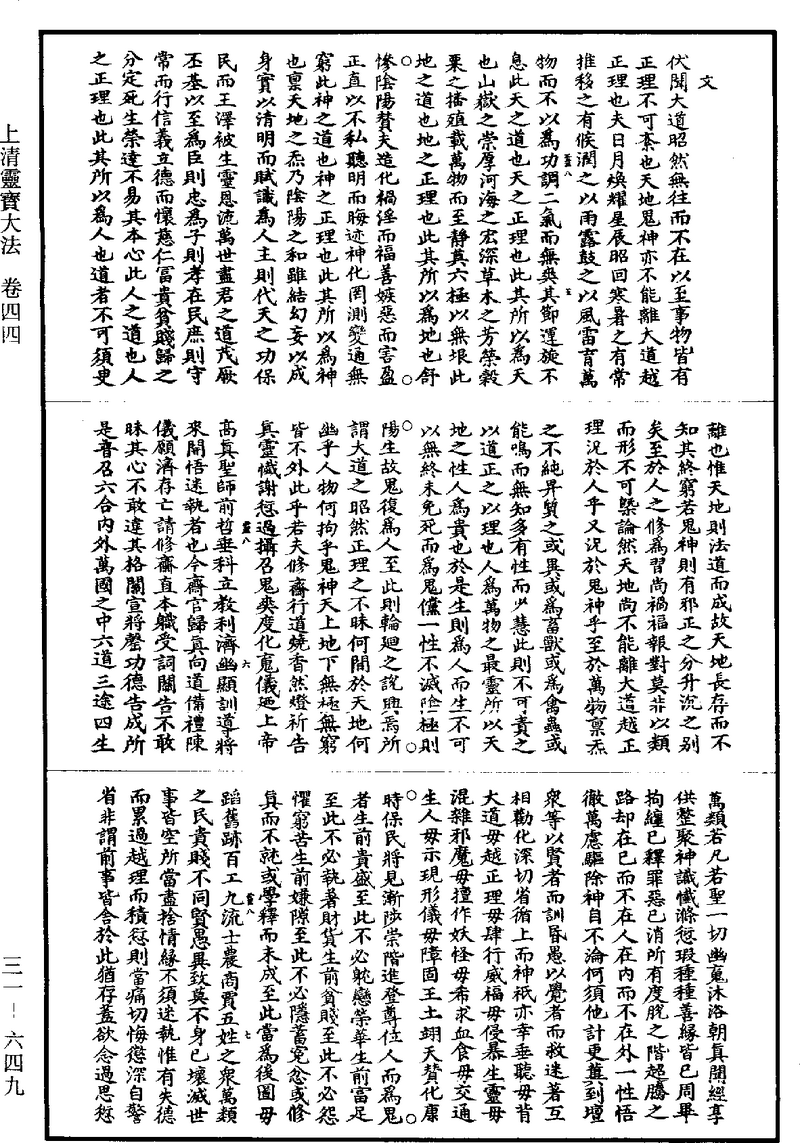 上清靈寶大法　卷四四
三一－六四九
文
伏聞大道昭然無往而不在以至事物皆有
正理不可紊也天地鬼神亦不能離大道越
正理也夫日月煥耀星辰昭回寒暑之有常
推移之有候潤之以雨露鼓之以風雷育萬
物而不以為功調二氣而無爽其節運旋不
息此天之道也天之正理也此其所以為天
也山嶽之崇厚河海之宏深草木之芳榮穀
粟之播殖載萬物而至靜莫六極以無垠此
地之道也地之正理也此其所以為地也舒
慘陰陽贊夫造化禍淫而福善嫉惡而害盈
正直以不私聽明而晦迹神化罔測變通無
窮此神之道也神之正理也此其所以為神
也稟天地之炁乃陰陽之和雖結幻妄以成
身實以清明而賦識為人主則代天之功保
民而王澤被生靈恩流萬世盡君之道茂厥
丕基以至為臣則忠為子則孝在民庶則守
常而行信義立德而懷慈仁富貴貧賤歸之
分定死生榮達不易其本心此人之道也人
之正理也此其所以為人也道者不可須臾
離也惟天地則法道而成故天地長存而不
知其終窮若鬼神則有邪正之分升沉之別
矣至於人之修為習尚禍福報對莫非以類
而形不可槩論然天地尚不能離大道越正
理況於人乎又況於鬼神乎至於萬物稟炁
之不純昇質之或異或為畜獸或為禽蟲或
能鳴而無知多有性而少慧此則不可責之
以道正之以理也人為萬物之最靈所以天
地之性人為貴也於是生則為人而生不可
以無終未免死而為鬼儻一性不滅陰極則
陽生故鬼復為人至此則輪廻之說興焉所
謂大道之昭然正理之不昧何間於天地何
幽乎人物何拘乎鬼神天上地下無極無窮
皆不外此乎若夫修齋行道燒香然燈祈告
真靈懺謝愆過攝召鬼爽度化寃儀廼上帝
高真聖師前哲垂科立教利濟幽顯訓導將
來開悟迷執者也今齋官歸真向道備禮陳
儀願濟存亡請修齋直本職受詞關告不敢
昧其心不敢違其格闡宣將罄功德告成所
是普召六合內外萬國之中六道三途四生
萬類若凡若聖一切幽魂沐浴朝真聞經享
供整聚神識懺滌愆瑕種種善緣皆已周畢
拘纏已釋罪惡已消所有度脫之階超騰之
路却在已而不在人在內而不在外一性悟
徹萬慮驅除神自不淪何須他計更薦到壇
衆等以賢者而訓昏愚以覺者而救迷著互
相勸化深切省循上而神祇亦幸垂聽毋背
大道毋越正理毋肆行威福毋侵暴生靈毋
混雜邪魔毋擅作妖怪毋希求血食毋交通
生人毋示現形儀毋障固王土翊天贊化康
時保民將見漸陟崇階進登尊位人而為鬼
者生前貴盛至此不必躭戀榮華生前富足
至此不必執著財貨生前貧賤至此不必怨
懼窮苦生前嫌隙至此不必隱蓄寃忿或修
真而不就或學釋而未成至此當為後圖毋
蹈舊跡百工九流士農商賈五姓之衆萬類
之民貴賤不同賢愚異致莫不身已壞滅世
事皆空所當盡捨情緣不須迷執惟有失德
而累過越理而積愆則當痛切悔懲深自警
省非謂前事皆舍於此猶存蓋欲念過思愆